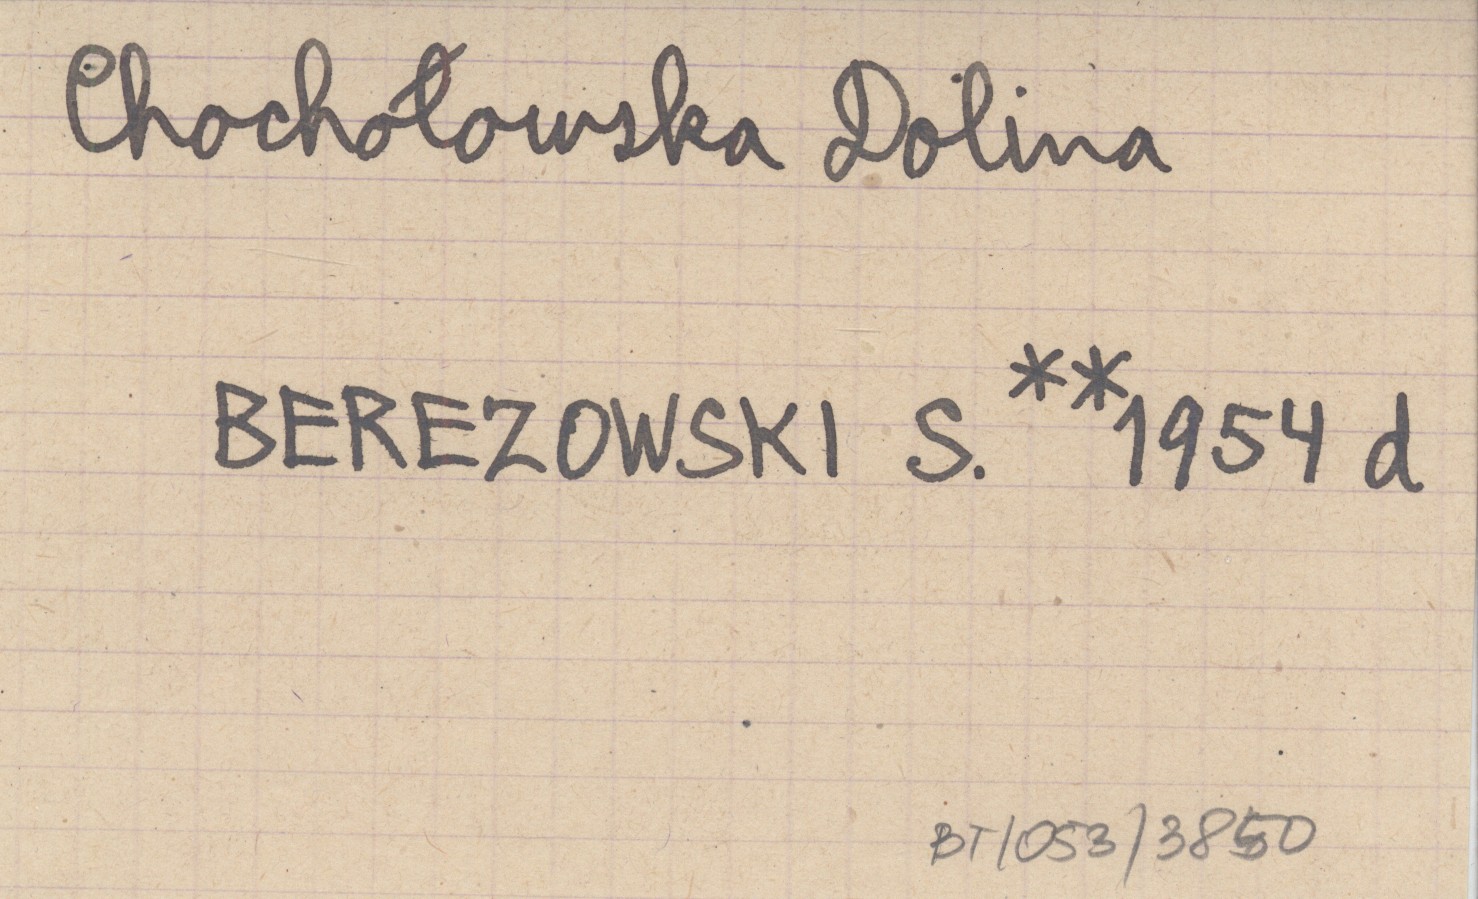 Chochołowska Dolina
BEREZOWSKI S.**1954 d
BT/053/3850